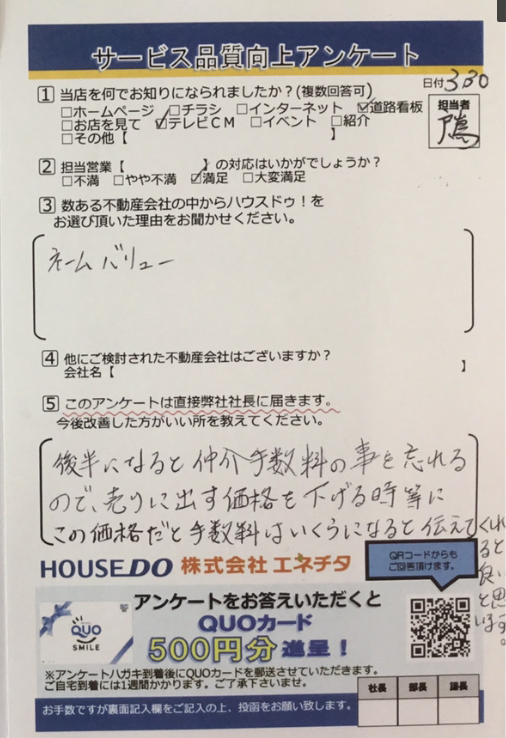 サービス品質向上アンケート
日付 3.30
1 当店を何でお知りになられましたか？(複数回答可)
□ホームページ □チラシ □インターネット ☑道路看板
□お店を見て ☑テレビCM □イベント □紹介
□その他【 】
担当者
2 担当営業【 】の対応はいかがでしょうか？
□不満 □やや不満 ☑満足 □大変満足
3 数ある不動産会社の中からハウスドゥ！を
お選び頂いた理由をお聞かせください。
ネームバリュー
4 他にご検討された不動産会社はございますか？
会社名【 】
5 このアンケートは直接弊社社長に届きます。
今後改善した方がいい所を教えてください。
後半になると仲介手数料の事を忘れる
ので、売りに出す価格を下げる時等に
この価格だと手数料はいくらになると伝えてくれ
ると
良い
と思
います。
HOUSEDO 株式会社 エネチタ
QRコードからも
ご回答頂けます。
QUO
SMILE
アンケートをお答えいただくと
QUOカード
500円分 進呈！
※アンケートハガキ到着後にQUOカードを郵送させていただきます。
ご自宅到着には1週間かかります。ご了承下さいませ。
社長 部長 課長
お手数ですが裏面記入欄をご記入の上、投函をお願い致します。